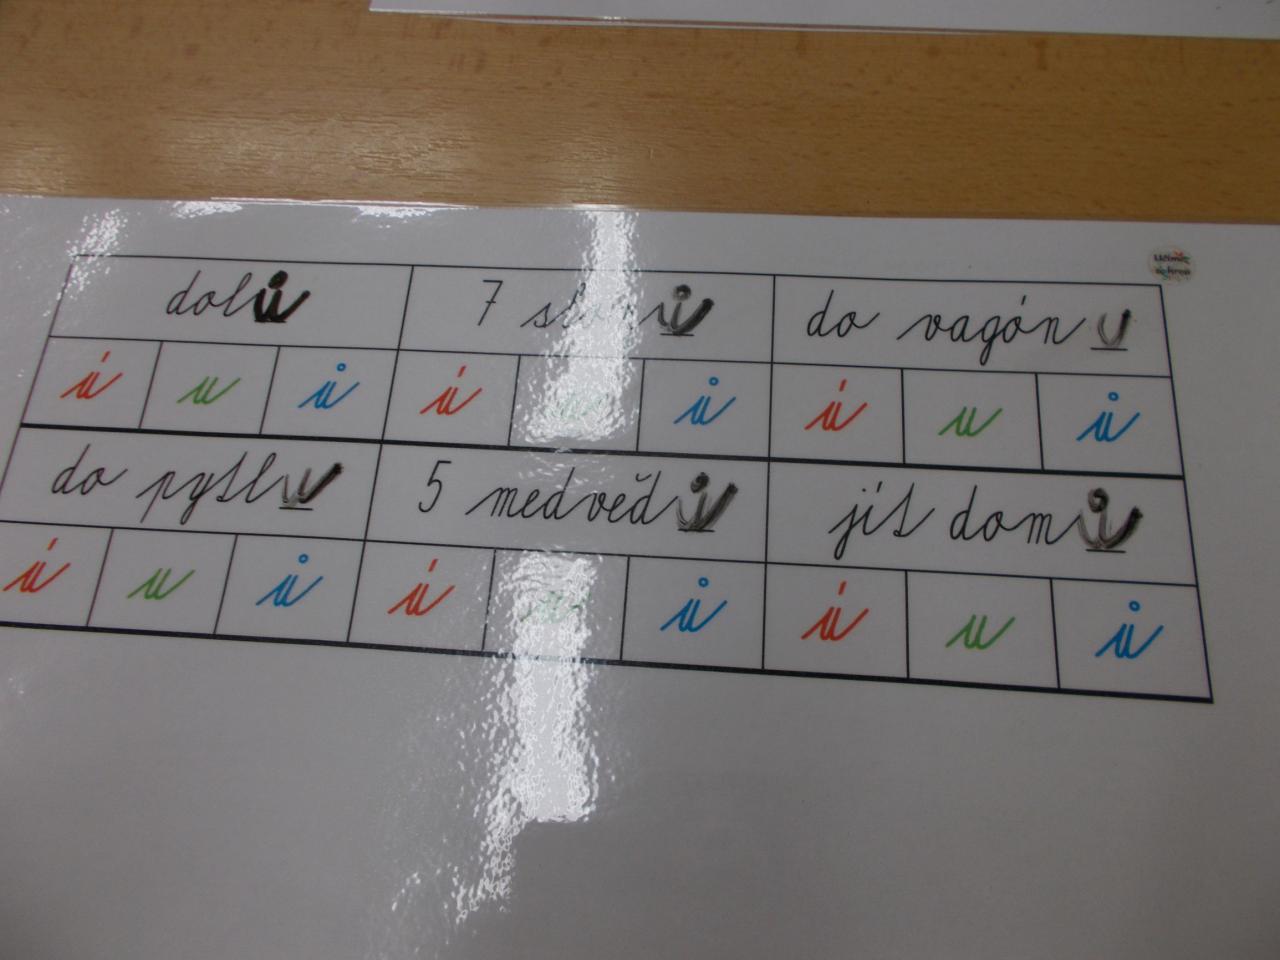 dolů 7 slonů do vagónu
ú u ů ú u ů ú u ů
do pytlu 5 medvědů jít domů
ú u ů ú u ů ú u ů